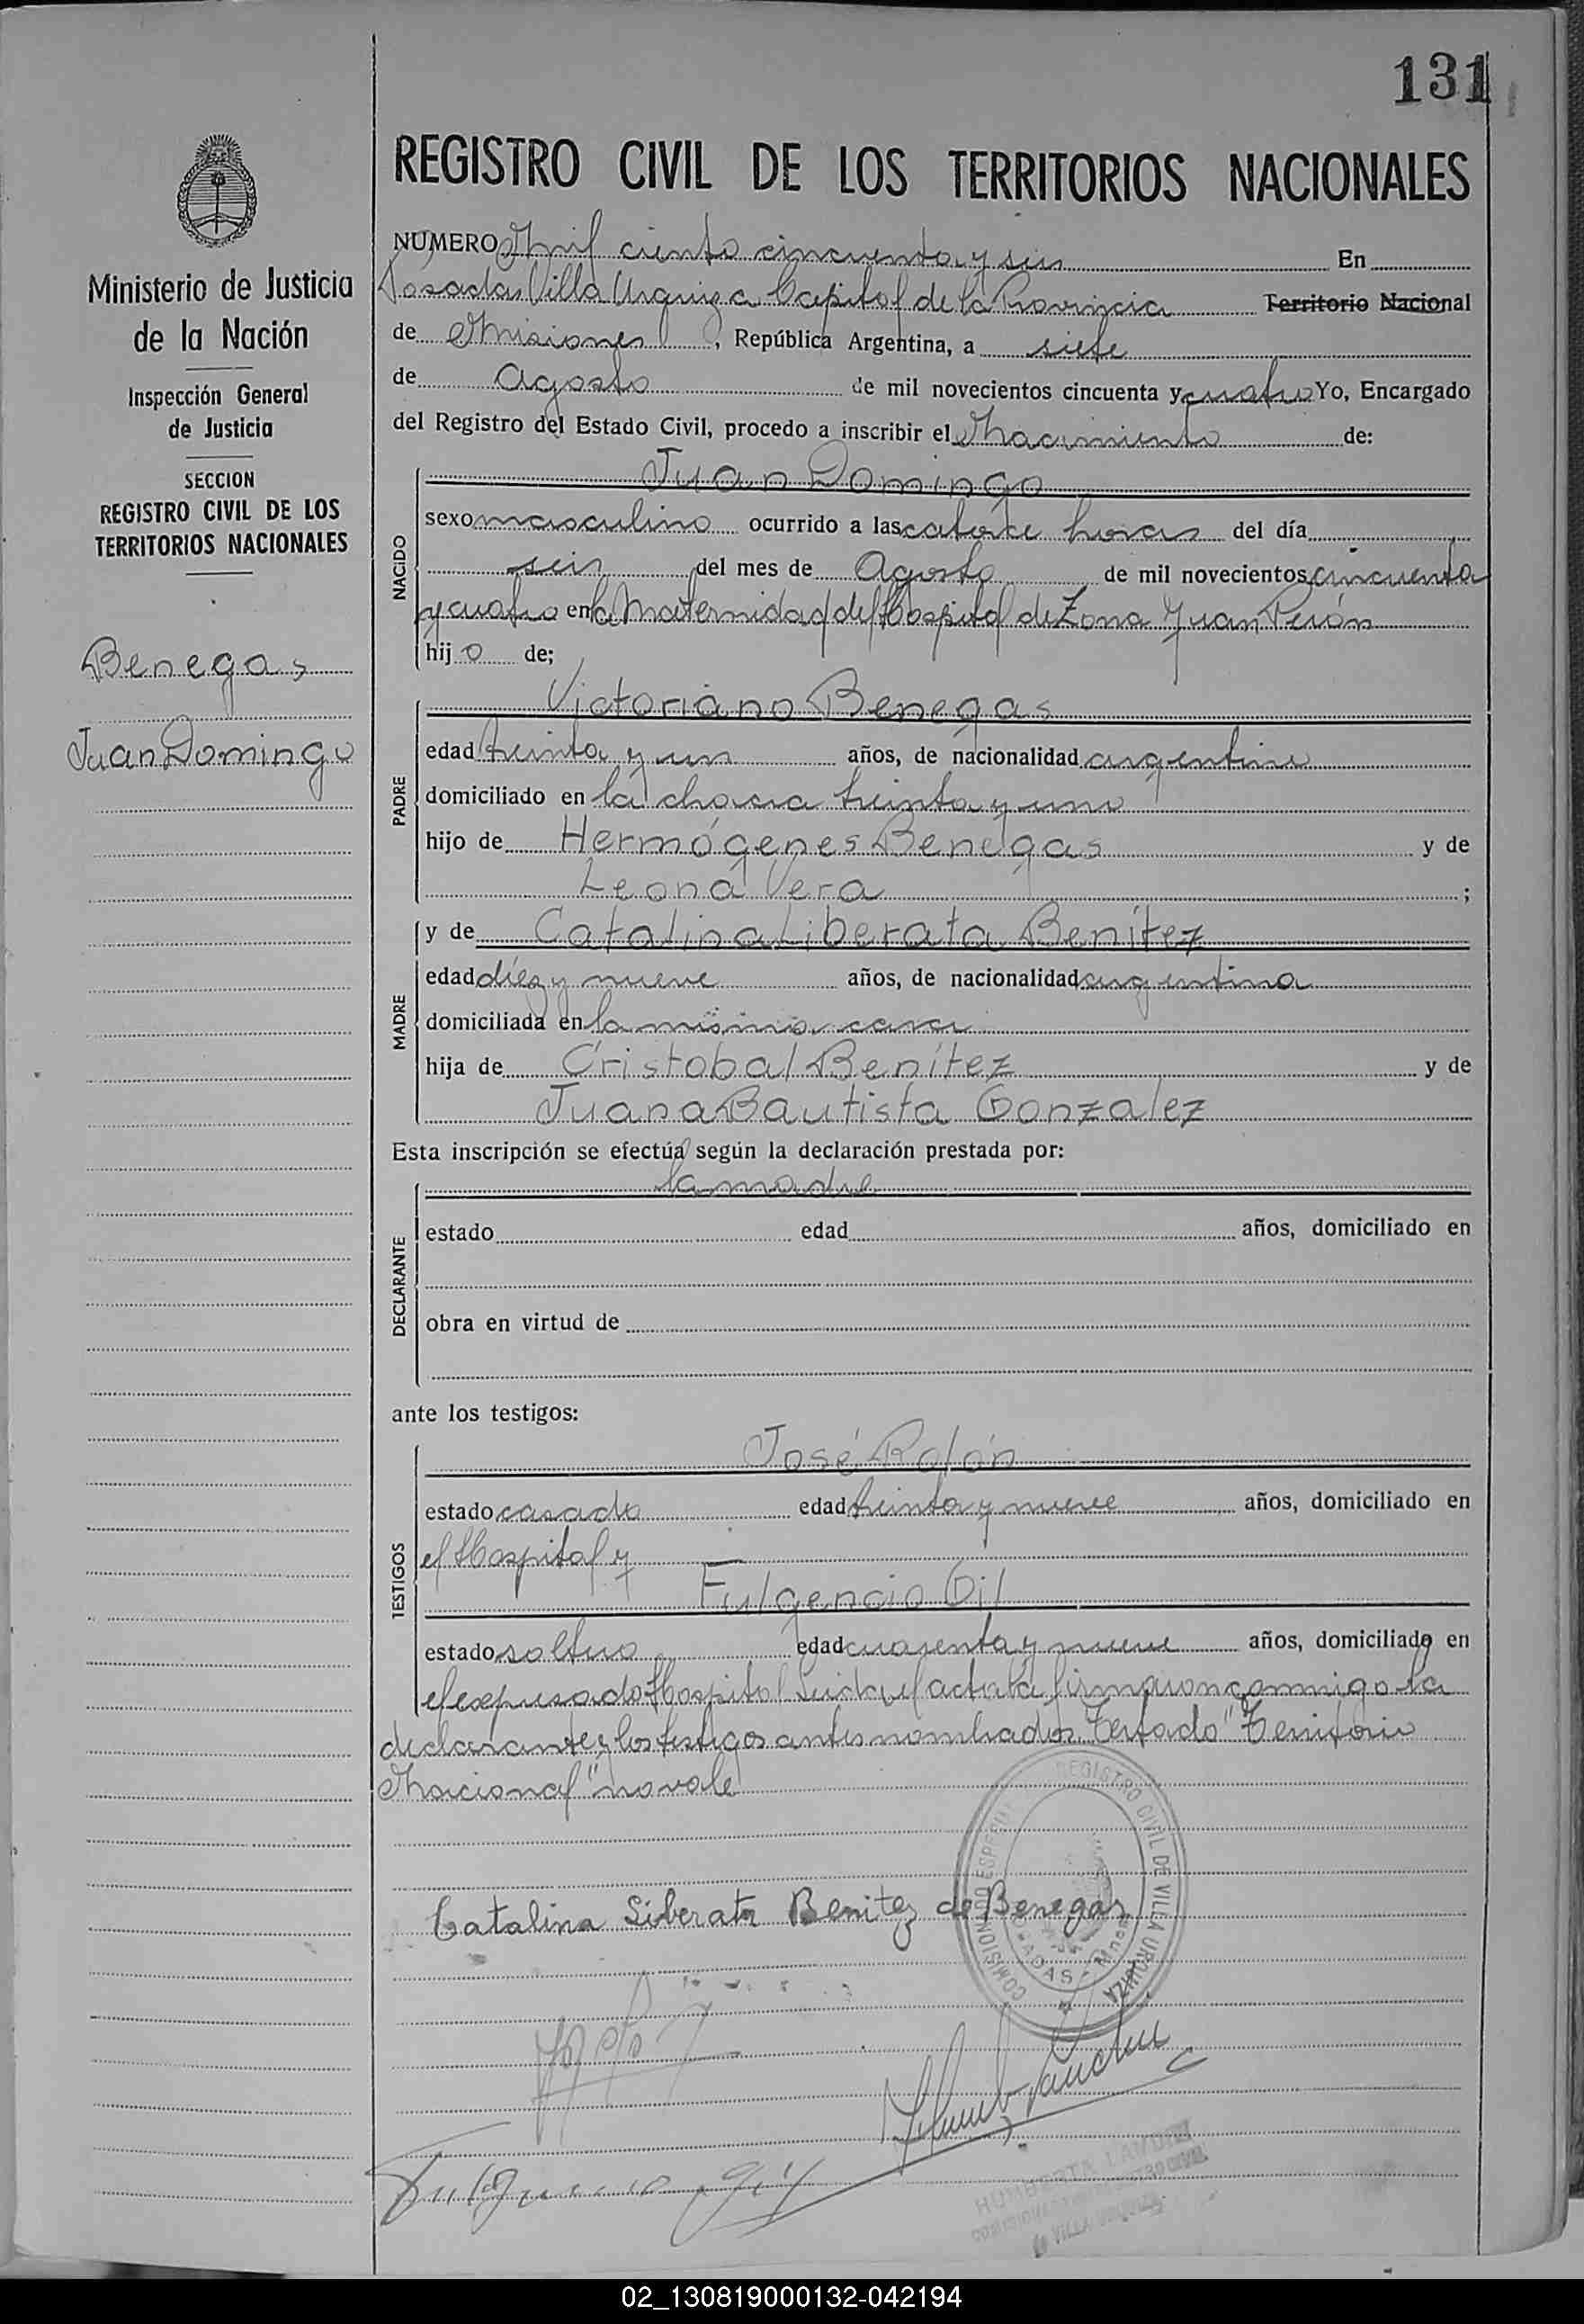 131
REGISTRO CIVIL DE LOS TERRITORIOS NACIONALES
Ministerio de Justicia
de la Nación
Inspección General
de Justicia
SECCION
REGISTRO CIVIL DE LOS
TERRITORIOS NACIONALES
Benegas
Juan Domingo
NUMERO Mil ciento cincuenta y seis En
Posadas Villa Urquiza Capital de la Provincia Territorio Nacional
de Misiones, República Argentina, a siete
de Agosto de mil novecientos cincuenta y cuatro Yo, Encargado
del Registro del Estado Civil, procedo a inscribir el Nacimiento de:
NACIDO
Juan Domingo
sexo masculino ocurrido a las catorce horas del día
seis del mes de Agosto de mil novecientos cincuenta
y cuatro en la Maternidad del Hospital de Zona Juan Perón
hijo de;
PADRE
Victoriano Benegas
edad treinta y un años, de nacionalidad argentino
domiciliado en la chacra treinta y uno
hijo de Hermógenes Benegas y de
Leona Vera ;
MADRE
y de Catalina Liberata Benítez
edad diez y nueve años, de nacionalidad argentina
domiciliada en la misma casa
hija de Cristobal Benítez y de
Juana Bautista Gonzalez
Esta inscripción se efectúa según la declaración prestada por:
DECLARANTE
la madre
estado edad años, domiciliado en
obra en virtud de
ante los testigos:
TESTIGOS
José Rolón
estado casado edad treinta y nueve años, domiciliado en
el Hospital y
Fulgencio Gil
estado soltero edad cuarenta y nueve años, domiciliado en
el expresado Hospital Leida el acta la firmaron conmigo la
declarante y los testigos antes nombrados Testado "Territorio
Nacional" no vale
REGISTRO CIVIL DE VILLA URQUIZA
COMISIONADO
Catalina Liberata Benitez de Benegas
Fulgencio Gil
VILLA
02_130819000132-042194